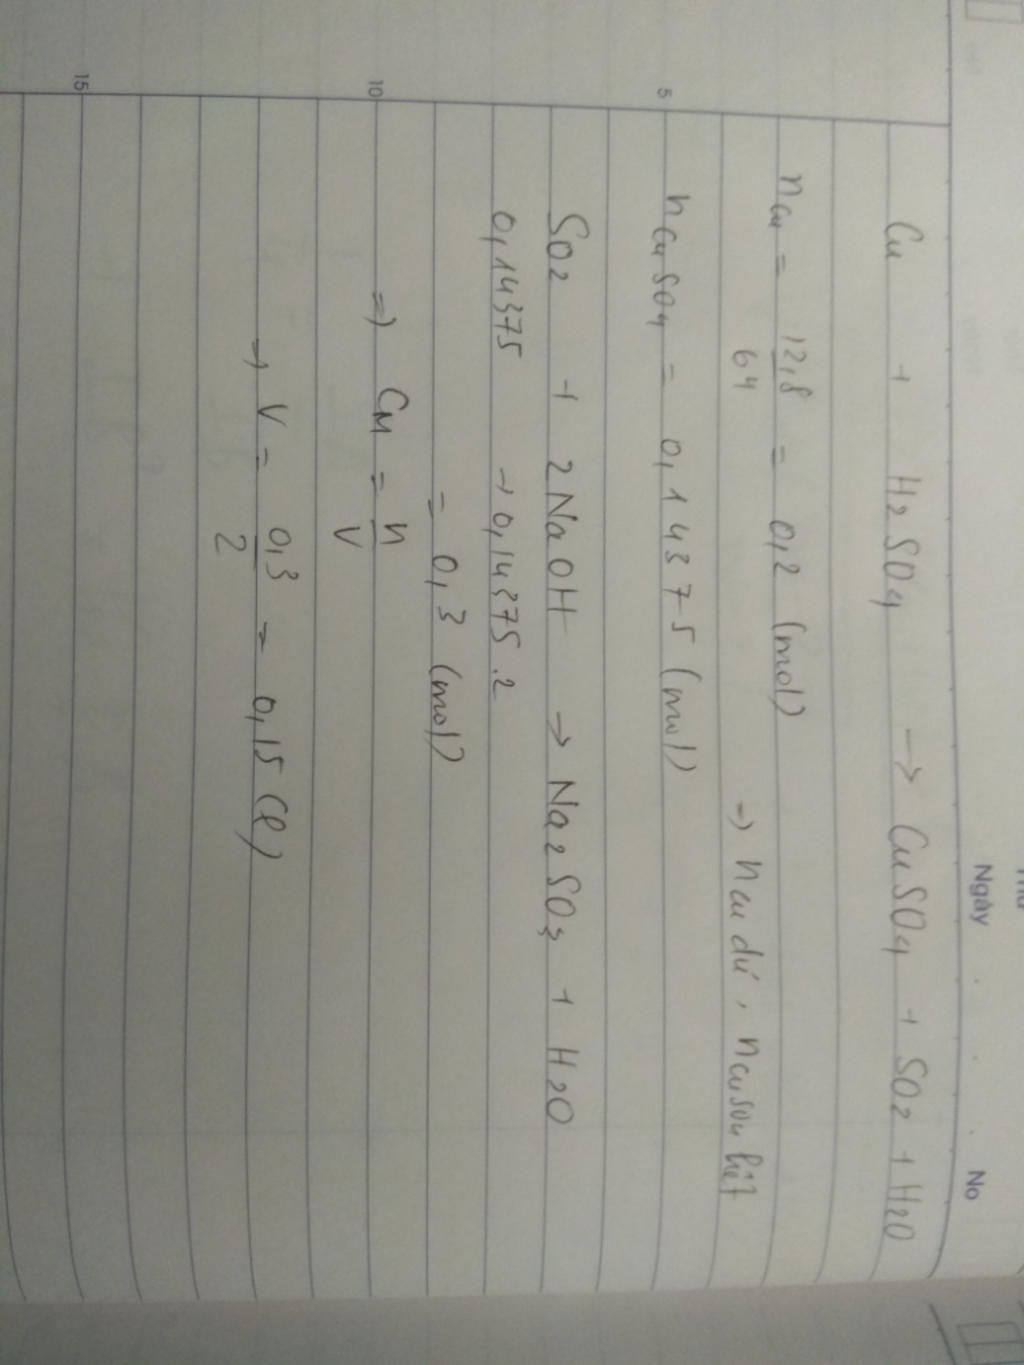 Ngày . . . No
Cu + H2SO4 → CuSO4 + SO2 + H2O
nCu = 12,8/64 = 0,2 (mol)
=) nCu dư, nCuSO4 hết
5
nCuSO4 = 0,14375 (mol)
SO2 + 2NaOH → Na2SO3 + H2O
0,14375 → 0,14375.2
= 0,3 (mol)
10
=) CM = n/V
→ V = 0,3/2 = 0,15 (l)
15